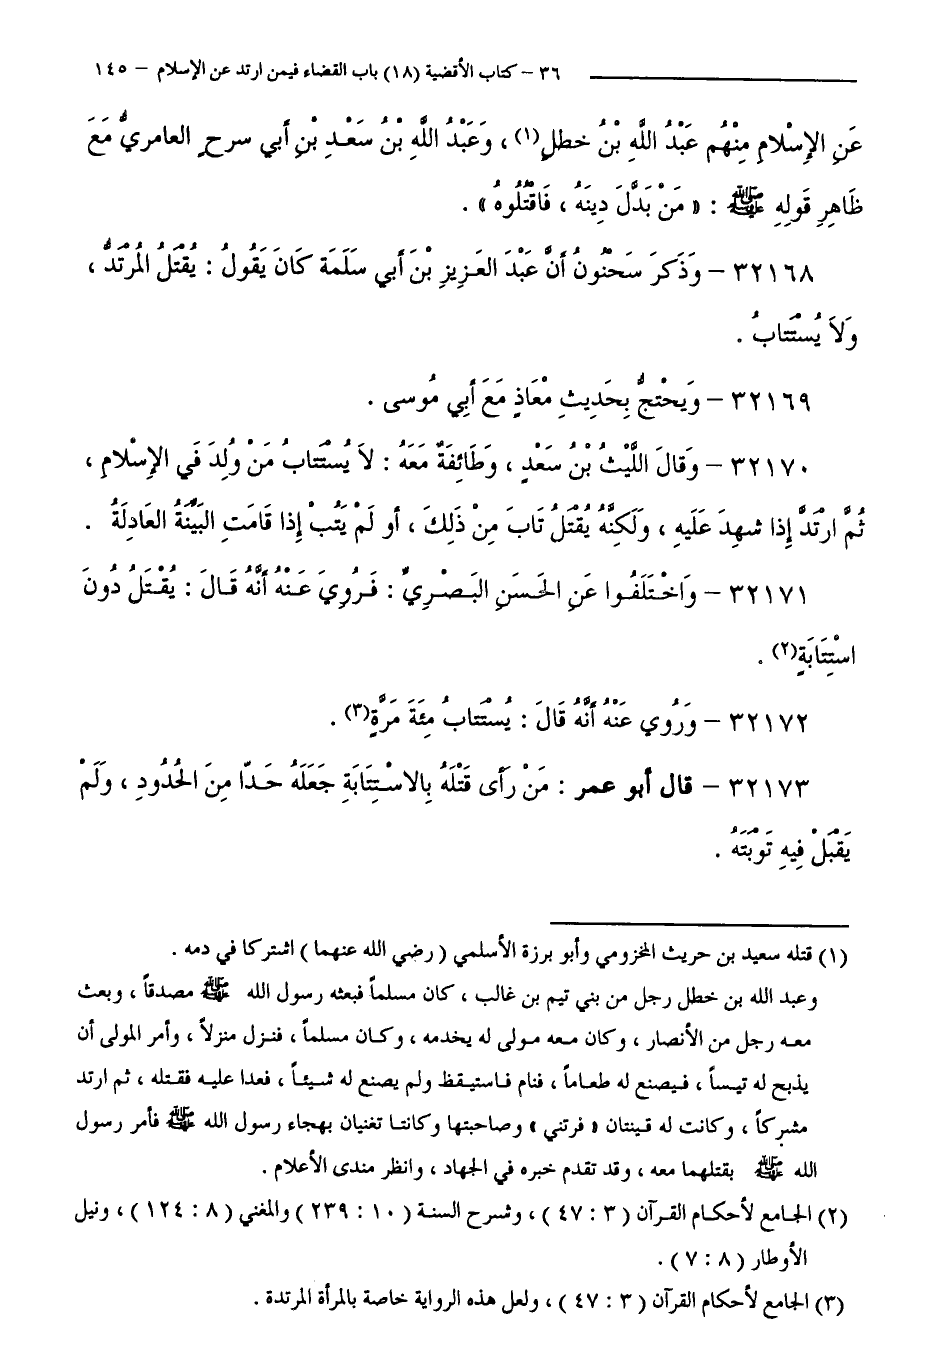 ٣٦ – كتاب الأقضية (١٨) باب القضاء فيمن ارتد عن الإسلام – ١٤٥
عَنِ الإِسْلامِ مِنْهُم عَبْدُ اللَّهِ بْنُ خطلٍ(١) ، وَعَبْدُ اللَّهِ بْنُ سَعْدِ بْنِ أبي سرحٍ العامريُّ مَعَ
ظَاهِرِ قَولِهِ ﷺ : « مَنْ بَدَّلَ دِينَهُ ، فَاقْتُلُوهُ » .
٣٢١٦٨ – وَذَكَرَ سَحْنُونُ أنَّ عَبْدَ العَزِيزِ بْنَ أبي سَلَمَة كَانَ يَقُولُ : يُقْتَلُ المُرْتَدُّ ،
وَلاَ يُسْتَتابُ .
٣٢١٦٩ – وَيَحْتجُّ بِحَدِيثِ مْعَاذٍ مَعَ أبِي مُوسى .
٣٢١٧٠ – وَقَالَ اللَّيْثُ بْنُ سَعْدٍ ، وَطَائِفَةٌ مَعَهُ : لاَ يُسْتَتابُ مَنْ وُلِدَ فَي الإِسْلامِ ،
ثُمَّ ارتَدَّ إِذا شهِدَ عَلَيهِ ، وَلَكِنَّهُ يُقْتَلُ تَابَ مِنْ ذَلِكَ ، أو لَمْ يَتُبْ إِذا قَامَتِ البَيِّنَةُ العَادِلَةُ .
٣٢١٧١ – وَاخْتَلَفُوا عَنِ الحَسَنِ البَصْرِيِّ : فَرُوِيَ عَنْهُ أنَّهُ قَالَ : يُقْتَلُ دُونَ
اسْتِتَابَةٍ(٢) .
٣٢١٧٢ – وَرُوِي عَنْهُ أنَّهُ قَالَ : يُسْتَتابُ مِئَةَ مَرَّةٍ(٣) .
٣٢١٧٣ – قال أبو عمر : مَنْ رَأى قَتْلَهُ بِالاسْتِتَابَةِ جَعَلَهُ حَدّا مِنَ الحُدُودِ ، وَلَمْ
يَقْبَلْ فِيهِ تَوْبَتَهُ .
(١) قتله سعيد بن حريث المخزومي وأبو برزة الأسلمي ( رضي الله عنهما ) اشتركا في دمه .
وعبد الله بن خطل رجل من بني تيم بن غالب ، كان مسلماً فبعثه رسول الله ﷺ مصدقاً ، وبعث
معه رجل من الأنصار ، وكان معه مولى له يخدمه ، وكان مسلماً ، فنزل منزلاً ، وأمر المولى أن
يذبح له تيساً ، فيصنع له طعاماً ، فنام فاستيقظ ولم يصنع له شيئاً ، فعدا عليه فقتله ، ثم ارتد
مشركاً ، وكانت له قينتان « فرتني » وصاحبتها وكانتا تغنيان بهجاء رسول الله ﷺ فأمر رسول
الله ﷺ بقتلهما معه ، وقد تقدم خبره في الجهاد ، وانظر مندى الأعلام .
(٢) الجامع لأحكام القرآن ( ٣ : ٤٧ ) ، وشرح السنة ( ١٠ : ٢٣٩ ) والمغني ( ٨ : ١٢٤ ) ، ونيل
الأوطار ( ٨ : ٧ ) .
(٣) الجامع لأحكام القرآن ( ٣ : ٤٧ ) ، ولعل هذه الرواية خاصة بالمرأة المرتدة .